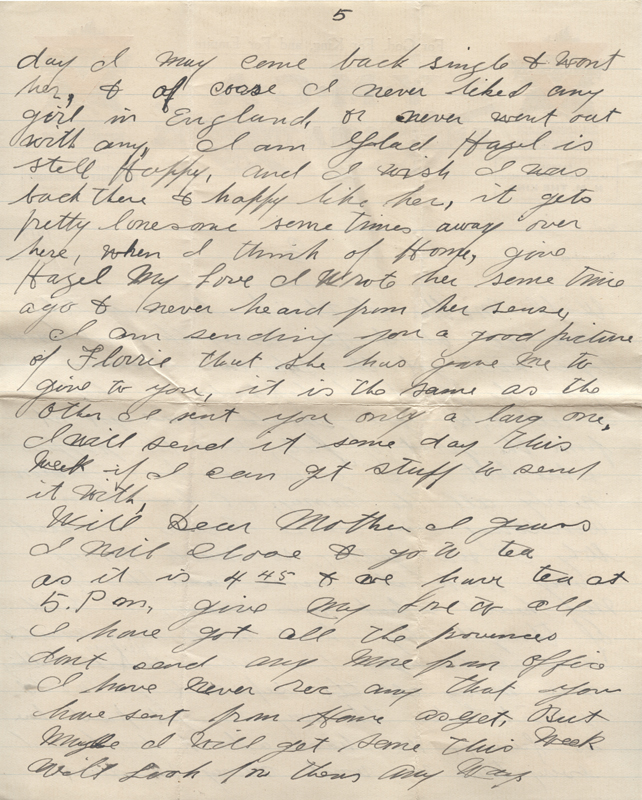 5
day I may come back single & wont
her, & of coase I never liked any
girl in England, or never went out
with any, I am Glad Hazel is
still Happy, and I wish I was
back there & happy like her, it gets
pretty lonesome some times away over
here, when I think of Home, give
Hazel My Love I Wrote her some time
ago & never heard from her sense,
I am sending you a good picture
of Florrie that she has gave me to
give to you, it is the same as the
other I sent you only a larg one,
I will send it some day this
week if I can get stuff to send
it with,
Will Dear Mother I guess
I will close & go to tea
as it is 4 45 & we have tea at
5. P m, give My love to all
I have got all the provinces
dont send any More from office
I have never rec any that you
have sent from Home as yet, But
Maybe I will get some this Week
will Look for them any Ways